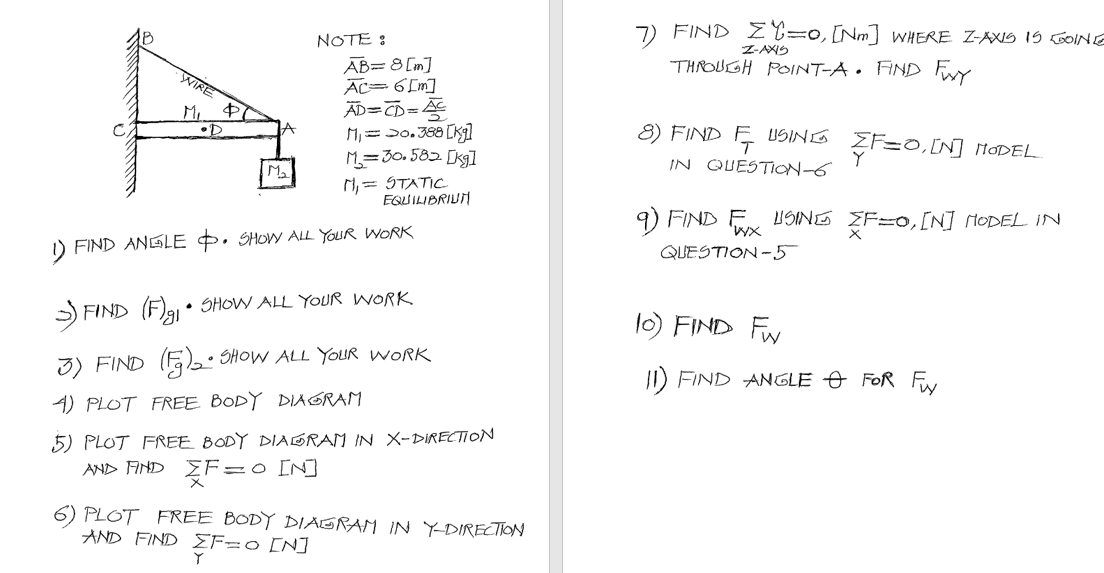 B
WIRE
M₁ Φ
C •D A
M₂
NOTE :
AB = 8 [m]
AC = 6 [m]
AD = CD = AC/2
M₁ = 20.388 [kg]
M₂ = 30.582 [kg]
M₁ = STATIC
EQUILIBRIUM
1) FIND ANGLE Φ. SHOW ALL YOUR WORK
2) FIND (F)g1 • SHOW ALL YOUR WORK
3) FIND (Fg)2 • SHOW ALL YOUR WORK
4) PLOT FREE BODY DIAGRAM
5) PLOT FREE BODY DIAGRAM IN X-DIRECTION
AND FIND ΣF = 0 [N]
X
6) PLOT FREE BODY DIAGRAM IN Y-DIRECTION
AND FIND ΣF = 0 [N]
Y
7) FIND Στ = 0, [Nm] WHERE Z-AXIS IS GOING
Z-AXIS
THROUGH POINT-A. FIND FWY
8) FIND FT USING ΣF = 0, [N] MODEL
Y
IN QUESTION-6
9) FIND FWX USING ΣF = 0, [N] MODEL IN
X
QUESTION-5
10) FIND FW
11) FIND ANGLE θ FOR FW